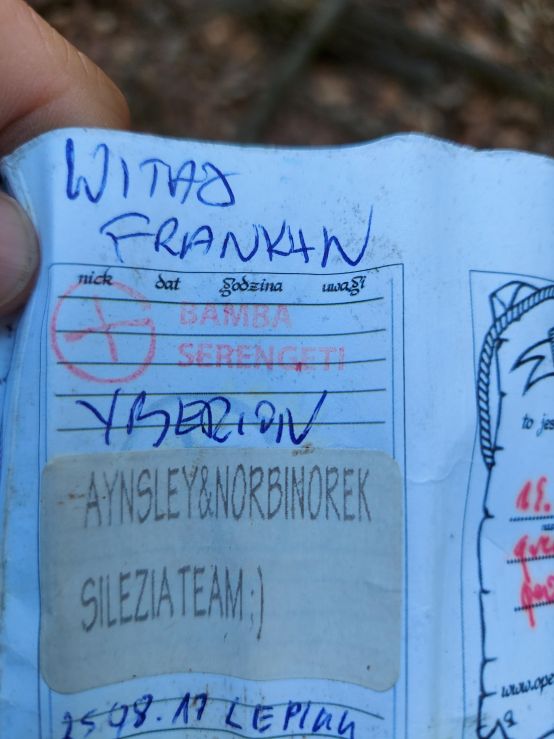 WITAJ
FRANKLIN
nick dat godzina uwagi
BAMBA
SERENGETI
YBERION
AYNSLEY&NORBINOREK
SILEZIATEAM ;)
LEPIKU
to jes
www.ope